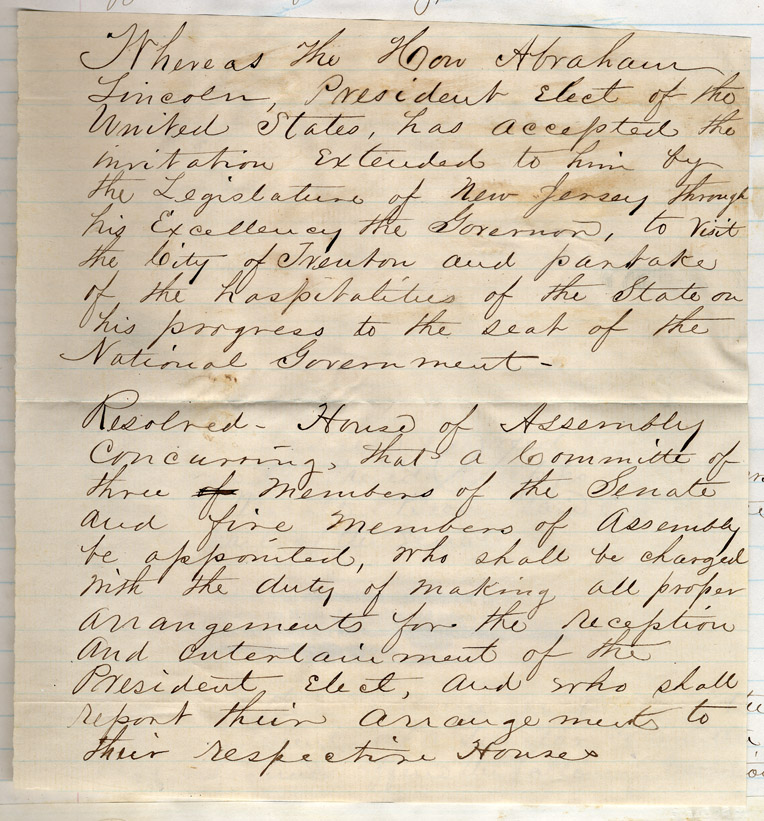 Whereas the Hon Abraham
Lincoln, President Elect of the
United States, has accepted the
invitation Extended to him by
the Legislature of New Jersey through
his Excellency the Governor, to visit
the City of Trenton and partake
of the hospitalities of the State on
his progress to the seat of the
National Government -
Resolved - House of Assembly
Concurring, that a Committe of
three of Members of the Senate
and five Members of Assembly
be appointed, who shall be charged
with the duty of making all proper
arrangements for the reception
and entertainment of the
President Elect, and who shall
report their arrangements to
their respective Houses